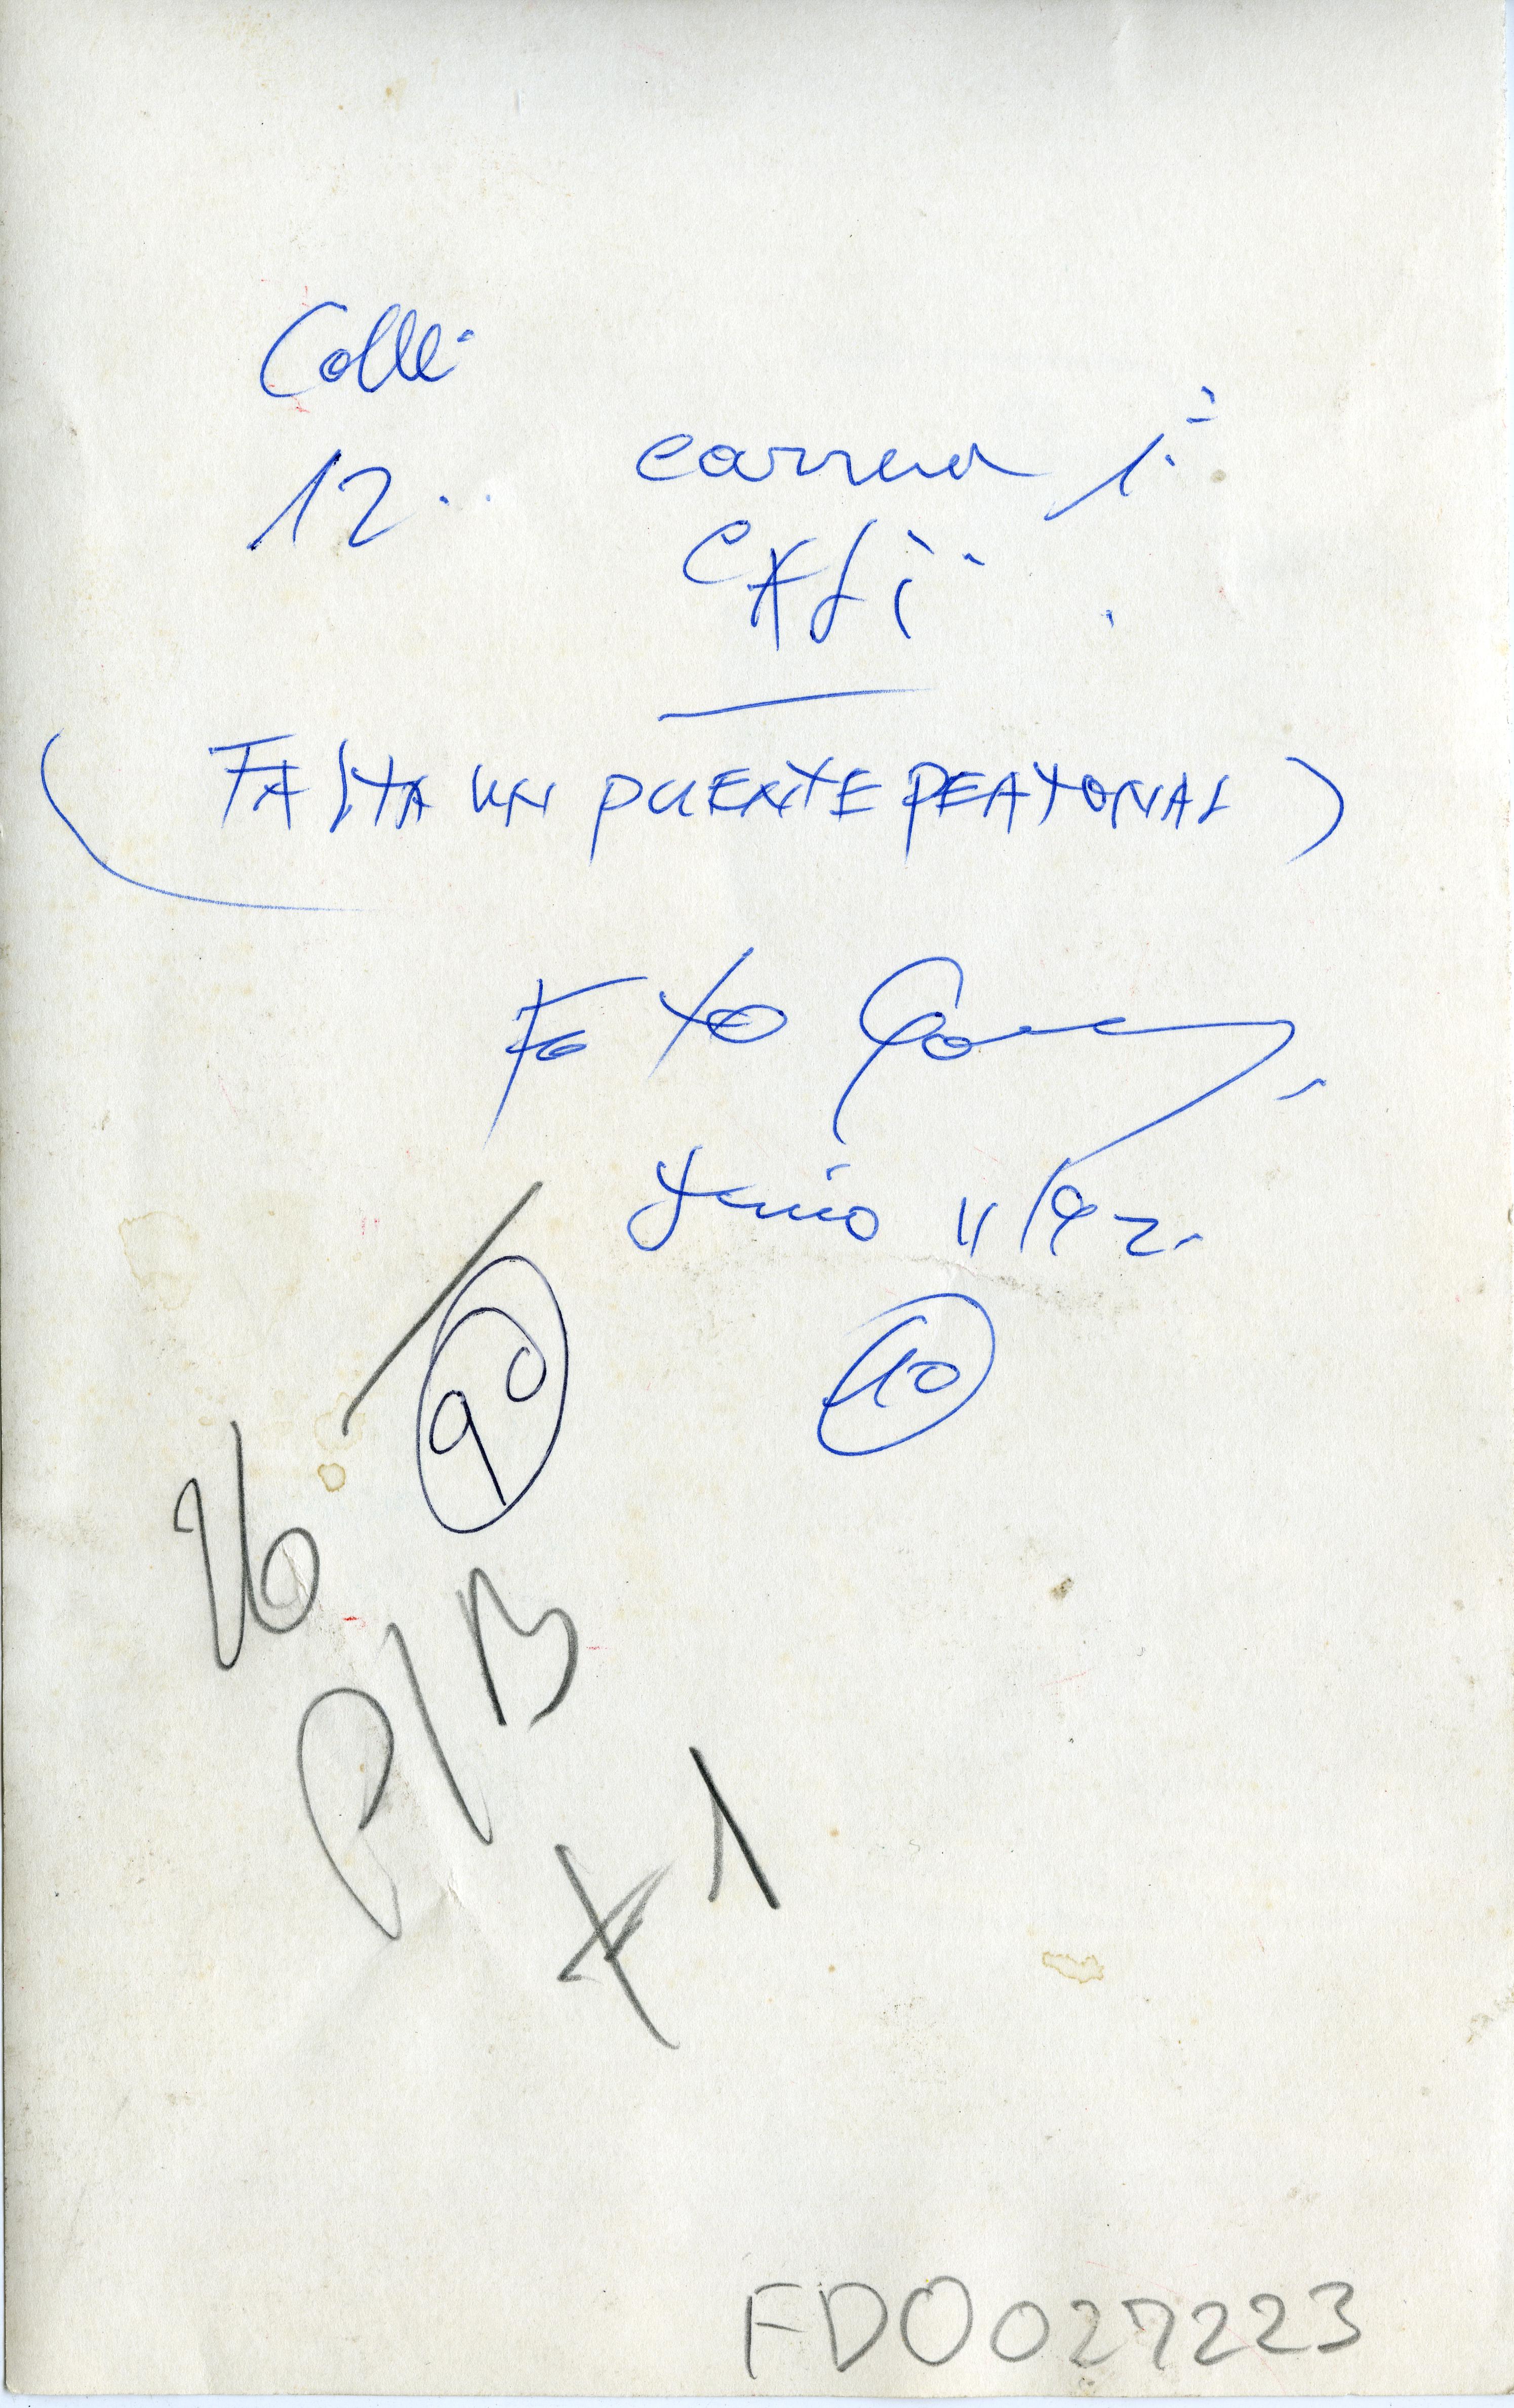 Calle
12.. carrera 1ª
CALi
(FALTA UN PUENTE PEATONAL)
Foto
Junio 11/92.
10
90
P/B
1
FDO027223